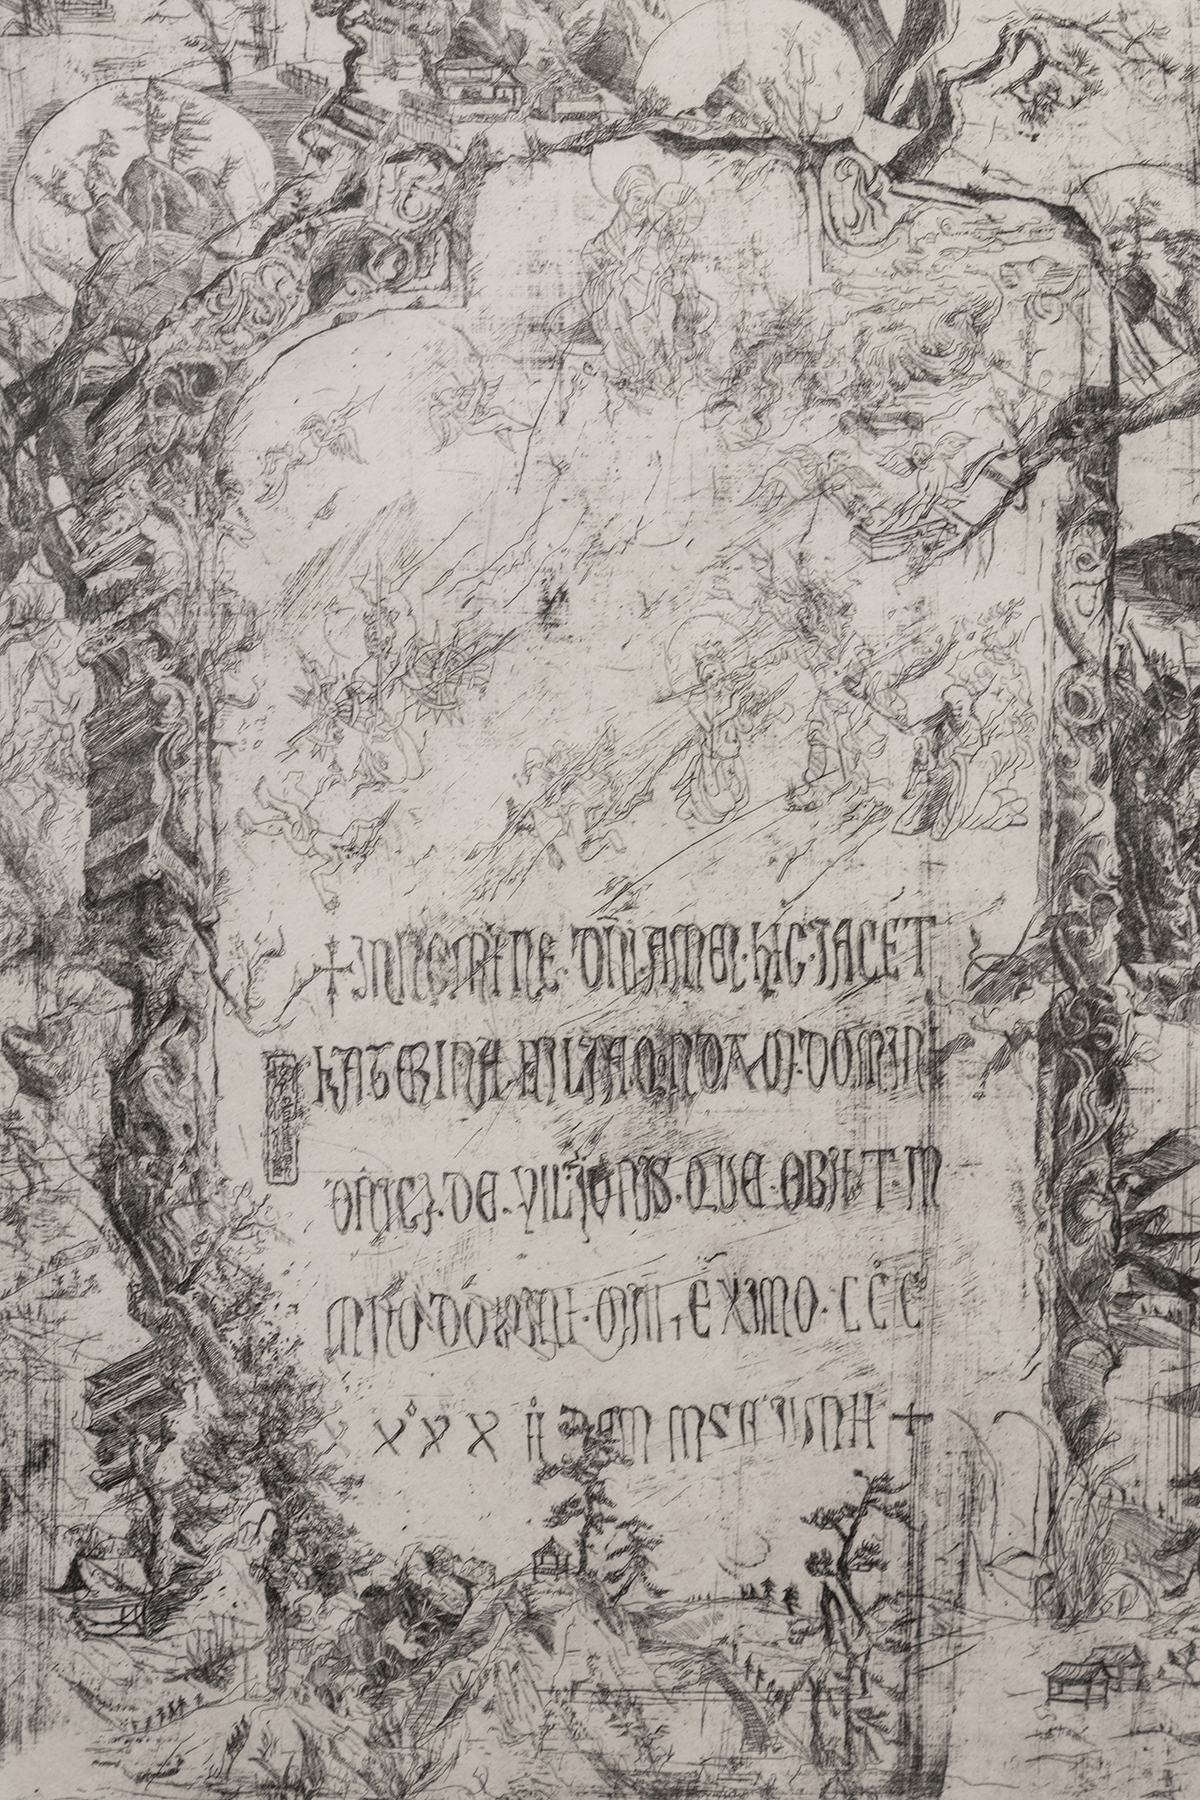 + IN NOMINE · DÑI · AMEN · HIC · JACET
KATERINA FILIA QONDAM · DOMINI
DE · VILIONIS · QUE · OBIIT · IN
ANNO · DOMINI · MIL EXIMO · CCC
XXXX +